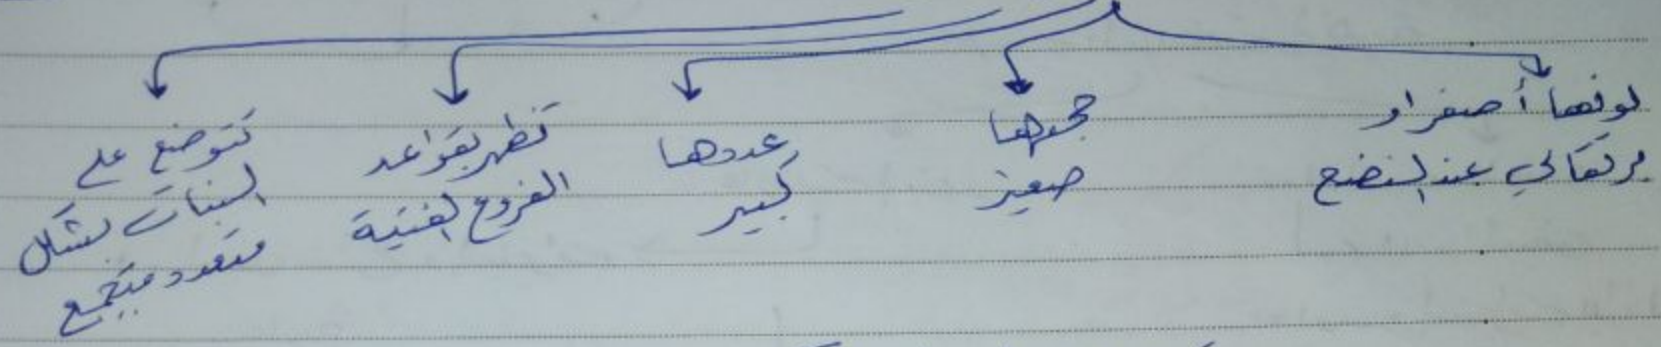 لونها أصفر أو
برتقالي عند النضج
حجمها
صغير
عددها
كبير
تظهر بقواعد
الفروع الفتية
تتوضع على
النبات بشكل
متعدد متجمع